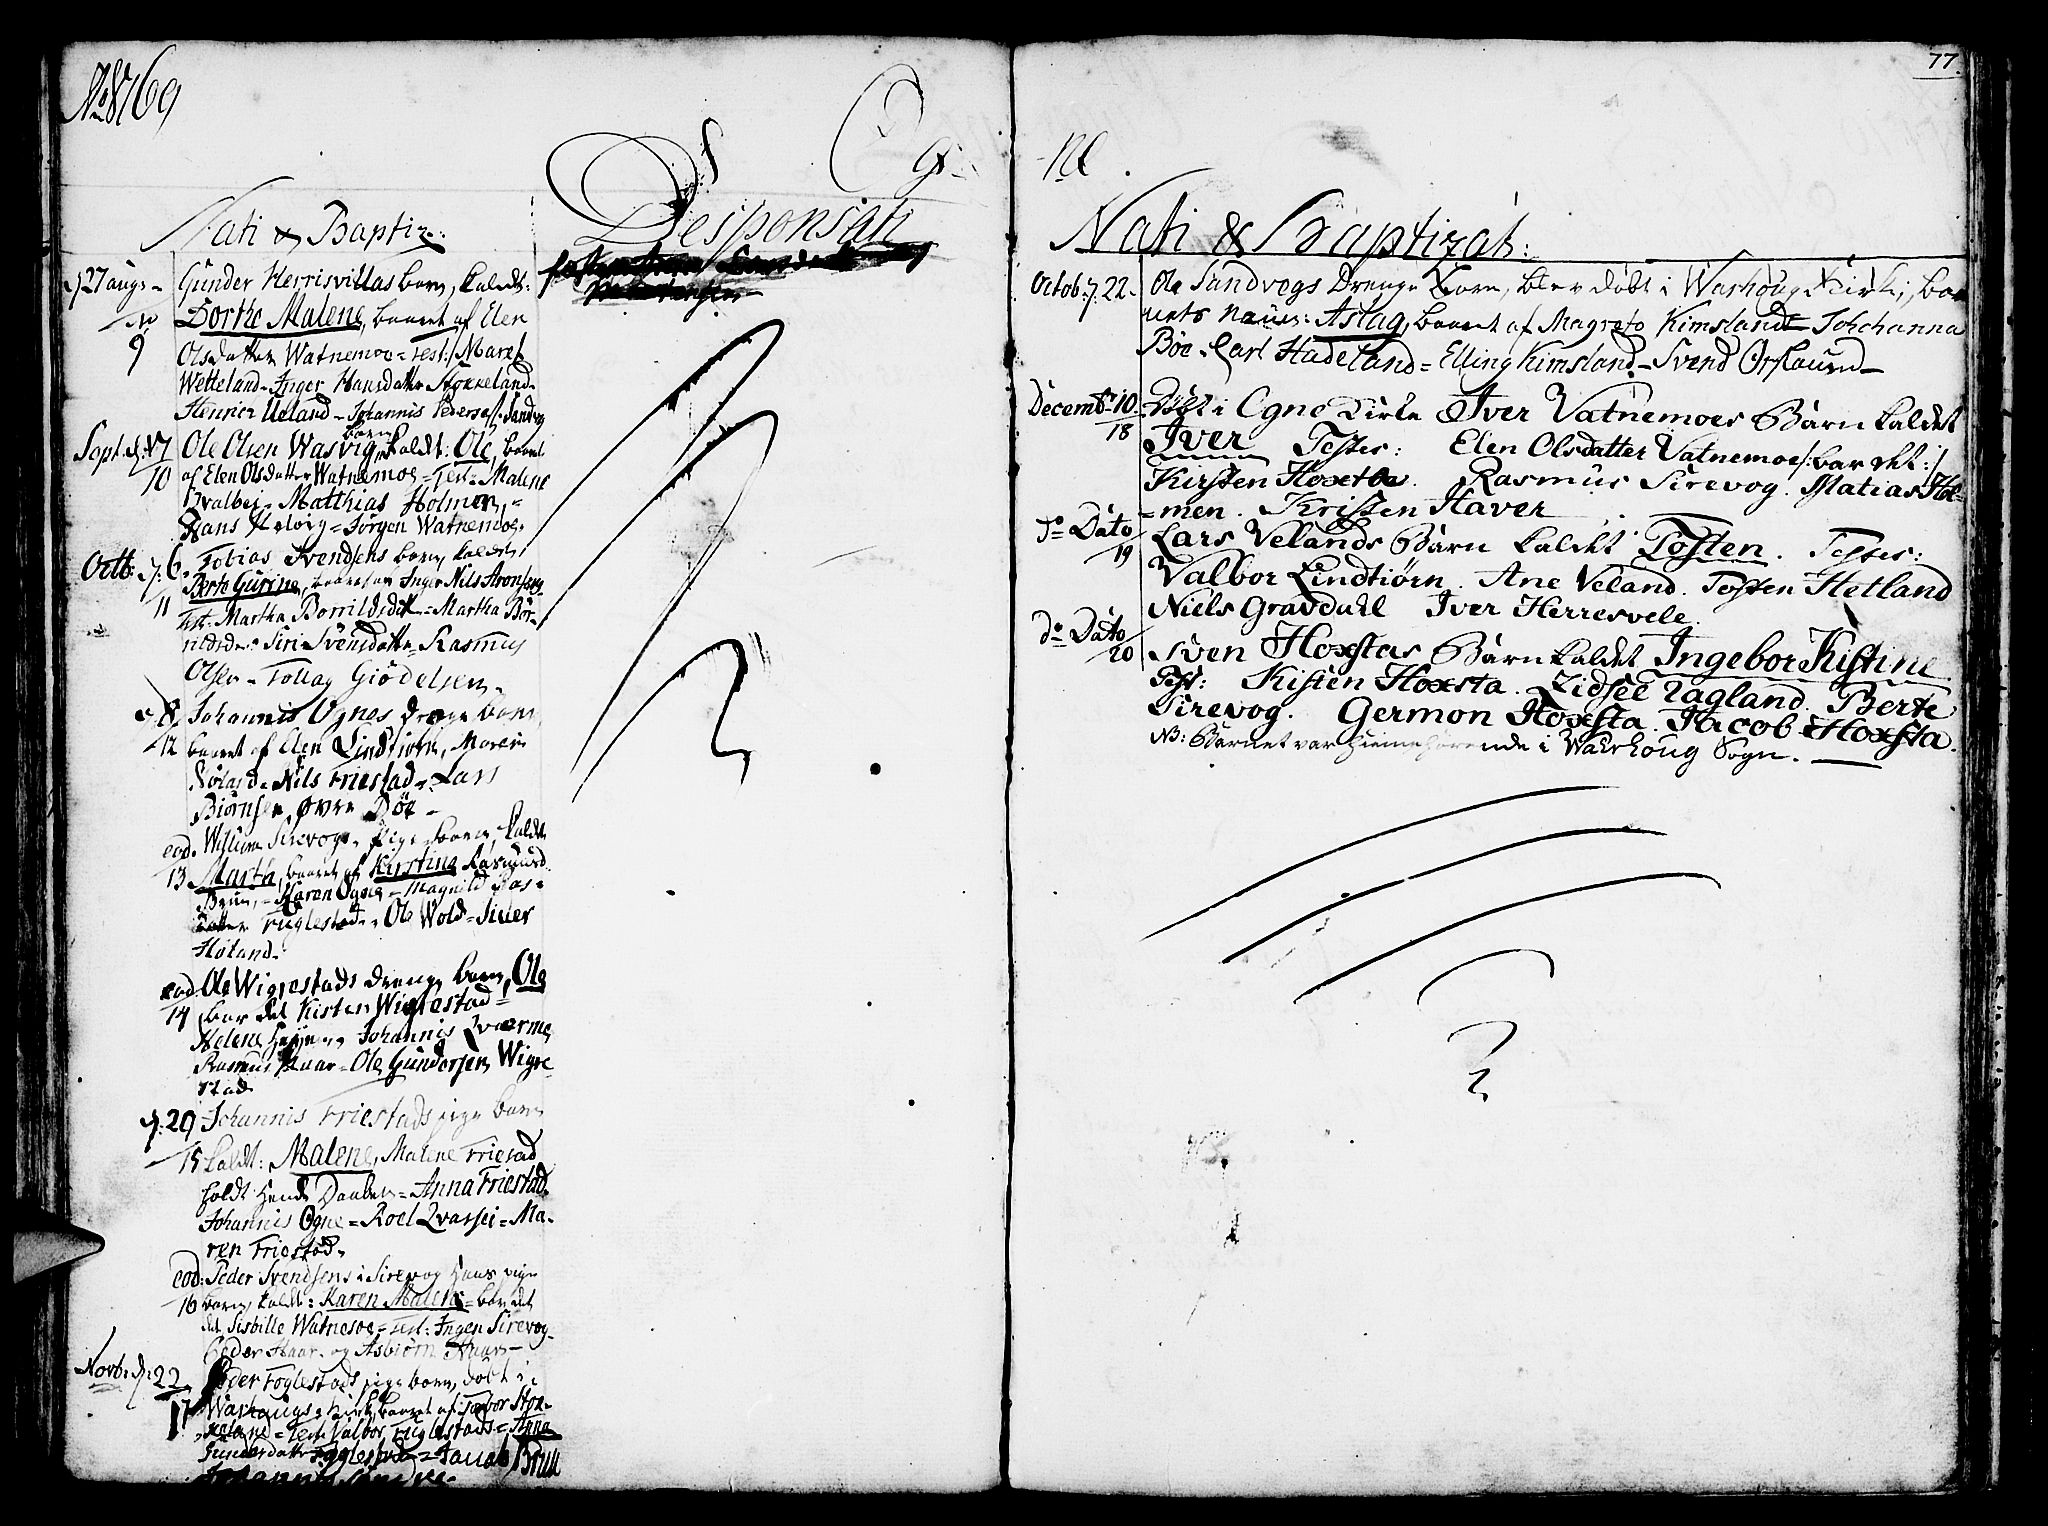 Nati & Baptiz:
d. 27 aug:
9
Gunder Herrisvillas barn, kaldt:
Dorthe Malene, baaret af Elen
Olsdatter Watnemoe = test: Maret
Wetteland - Inger Hansdatter Stokkeland
Henrich Ueland - Johannis Peders
Sept. d: 17
10
Ole Olsen Wasvig barn kaldt: Ole, baaret
af Elen Olsdatter Watnemoe = Test = Malene
Matthias Holmen, =
Hans Helvig = Jørgen Watnemoe.
Octb. d: 6.
11
Tobias Svendsens barn kaldt
Berte Gurine, baaret av Inger Nils
test: Martha Borrildsdtr = Martha Bør-
rildsd = Siri Svensdatter = Rasmus
Olsen = Tollag Giødelsen
d. 8
12
Johannis Ognes drenge barn
baaret af Elen Lindtiørn, Maren
Nils Friestad = Lars
Biørnsen Øvre Böe -
eod.
13
Sirevogs Pige barn, kaldt
Martha, baaret af Kirstina Rasmusd
Brun, = Karen Ogne = Magnild Ras-
datter Fuglestad = Ole Wold = Siuer
Høland.
eod.
14
Ole Wigrestads drenge barn, Ole
bar det Kisten Wigrestad =
Helene Johannis Qværme,
Rasmus Haar = Ole Gundersen Wigre-
stad
d: 29
15
Johannis Friestads pige barn
kaldt: Malene, Malene Friestad
holdt hende Daaben = Anna Friestad
Johannis Ogne = Roel Qvassei = Ma-
ren Friestad.
eod:
16
Peder Svendsens i Sirevog hans pige
barn, kaldt: Karen Malene = bar det
det Sisbille Watnemoe = test: Inger Sirevog
Peder Haar og Asbiørn Haar -
Novb. d: 22
17
Peder Foglestads pige barn, döbt i
Warhaugs Kirk, baaret af
Test Valbor Fuglestads = Anna
Gundersdatter Fuglestad = Jacob Brun
Desponsati
77.
Nati & Baptizat:
Octob. d. 22.
Ole Sandvogs Drenge Barn, blev döbt i Warhoug Kirke, bar
nets Naun: Aslag, baaret af Magrete Kimsland - Johanna
Böe - Carl Hadeland = Elling Kimsland - Svend Orslauen -
Decemb: 10
18
Döbt i Ogne Kirke Iver Vatnemoes Barn kaldet
Iver Testes: Elen Olsdatter Vatnemoe /: bar det :/
Kirsten Hoxta. Rasmus Sirevog. Matias Hol-
=men. Kristen Haver
Do Dato
19
Lars Velands Barn kaldet Tosten. Testes:
Valbor Lindtiørn. Ane Veland. Tosten Hetland
Niels Gravdahl Iver Herresvele.
Do Dato
20
Sven Hoxstas Barn kaldet Ingebor Kistine.
Test: Kisten Hoxsta. Zidsel Tagland. Berte
Sirevog. Germon Hoxsta. Jacob Hoxsta.
NB: Barnet var hiemehørende i Warhoug Sogn.